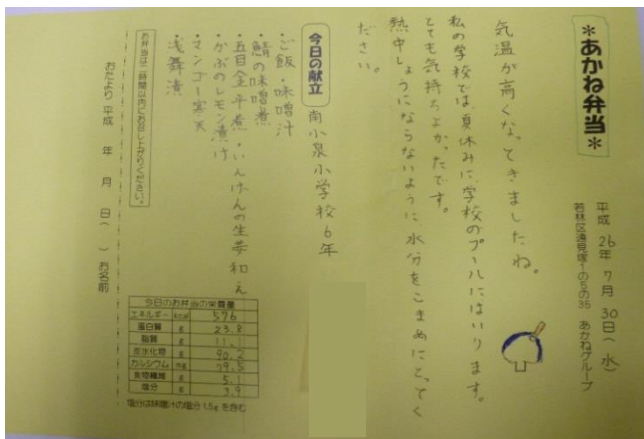 ＊あかね弁当＊
平成26年7月30日(水)
若林区遠見塚1の5の35　あかねグループ
気温が高くなってきましたね。
私の学校では夏休みに学校のプールにはいります。
とても気持ちよかったです。
熱中しょうにならないように水分をこまめにとってく
ださい。
南小泉小学校6年
今日の献立
・ご飯・味噌汁
・鯖の味噌煮
・五目金平煮・いんげんの生姜和え
・かぶのレモン漬け
・マンゴー寒天
・浅舞漬
お弁当は二時間以内にお召し上がりください。
おたより 平成　年　月　日(　)お名前
今日のお弁当の栄養量
エネルギー kcal 576
蛋白質 g 23.8
脂質 g 11.1
炭水化物 g 90.2
カルシウム mg 79.5
食物繊維 g 5.1
塩分 g 3.9
塩分は味噌汁の塩分1.5gを含む